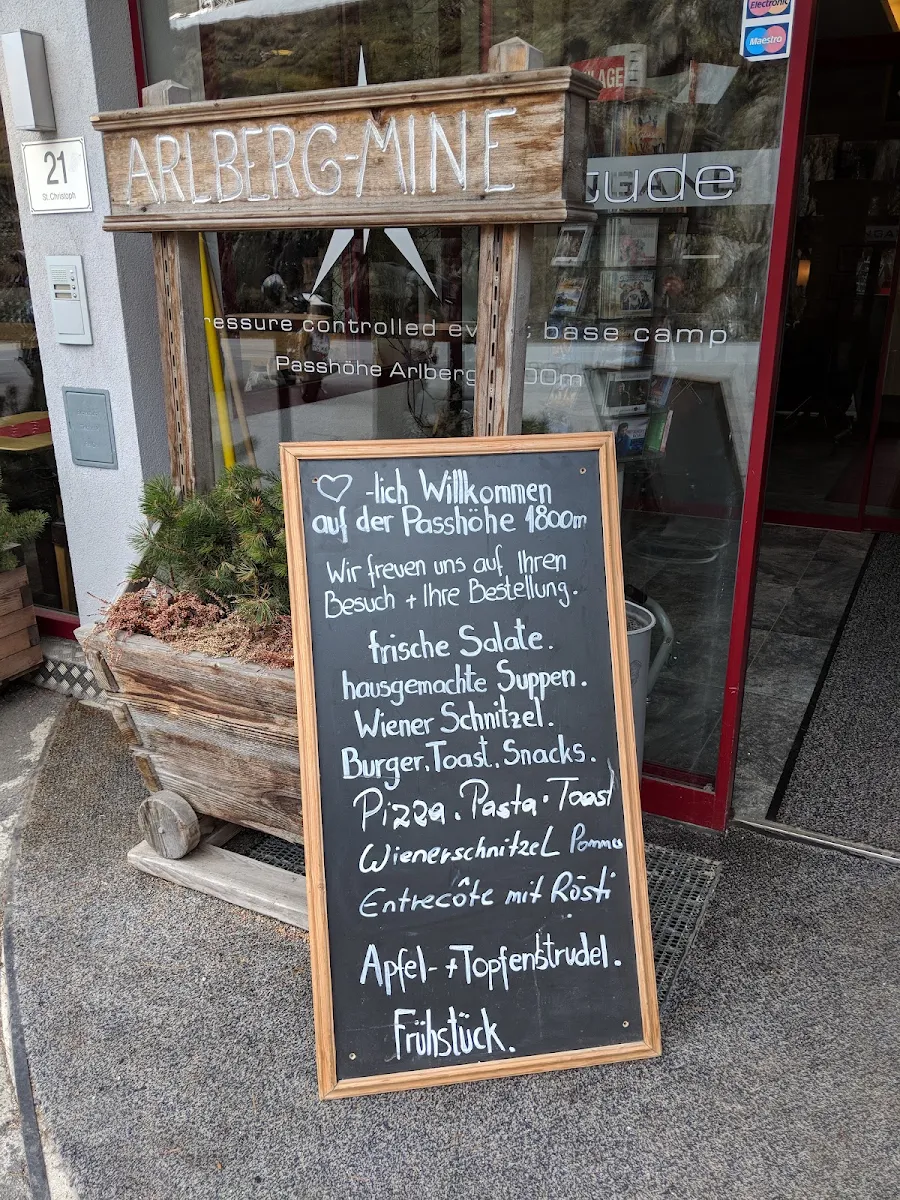 Electronic
Maestro
LAGE
21
St. Christoph
ARLBERG-MINE
tude
ressure controlled ev t base camp
Passhöhe Arlberg 00m
-lich Willkommen
auf der Passhöhe 1800m
Wir freuen uns auf Ihren
Besuch + Ihre Bestellung.
frische Salate.
hausgemachte Suppen.
Wiener Schnitzel.
Burger. Toast. Snacks.
Pizza. Pasta. Toast
WienerschnitzeL Pommes
Entrecôte mit Rösti
Apfel- + Topfenstrudel.
Frühstück.